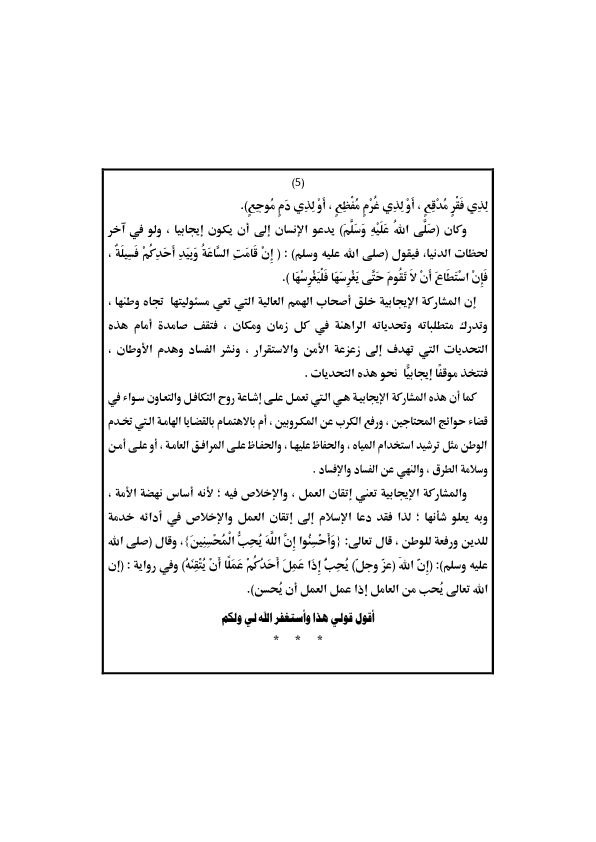 (5)
لِذِي فَقْرٍ مُدْقِعٍ ، أَوْ لِذِي غُرْمٍ مُفْظِعٍ ، أَوْ لِذِي دَمٍ مُوجِعٍ).
وكان (صَلَّى اللهُ عَلَيْهِ وَسَلَّمَ) يدعو الإنسان إلى أن يكون إيجابيا ، ولو في آخر
لحظات الدنيا، فيقول (صلى الله عليه وسلم) : ( إِنْ قَامَتِ السَّاعَةُ وَبِيَدِ أَحَدِكُمْ فَسِيلَةٌ ،
فَإِنْ اسْتَطَاعَ أَنْ لاَ تَقُومَ حَتَّى يَغْرِسَهَا فَلْيَغْرِسْهَا ).
إن المشاركة الإيجابية خلق أصحاب الهمم العالية التي تعي مسئوليتها تجاه وطنها ،
وتدرك متطلباته وتحدياته الراهنة في كل زمان ومكان ، فتقف صامدة أمام هذه
التحديات التي تهدف إلى زعزعة الأمن والاستقرار ، ونشر الفساد وهدم الأوطان ،
فتتخذ موقفًا إيجابيًّا نحو هذه التحديات .
كما أن هذه المشاركة الإيجابية هي التي تعمل على إشاعة روح التكافل والتعاون سواء في
قضاء حوائج المحتاجين ، ورفع الكرب عن المكروبين ، أم بالاهتمام بالقضايا الهامة التي تخدم
الوطن مثل ترشيد استخدام المياه ، والحفاظ عليها ، والحفاظ على المرافق العامة ، أو على أمن
وسلامة الطرق ، والنهي عن الفساد والإفساد .
والمشاركة الإيجابية تعني إتقان العمل ، والإخلاص فيه ؛ لأنه أساس نهضة الأمة ،
وبه يعلو شأنها ؛ لذا فقد دعا الإسلام إلى إتقان العمل والإخلاص في أدائه خدمة
للدين ورفعة للوطن ، قال تعالى: {وَأَحْسِنُوا إِنَّ اللَّهَ يُحِبُّ الْمُحْسِنِينَ}، وقال (صلى الله
عليه وسلم): (إِنّ اللهَ (عزّ وجلّ) يُحِبّ إِذَا عَمِلَ أَحَدُكُمْ عَمَلًا أَنْ يُتْقِنَهُ) وفي رواية : (إن
الله تعالى يُحب من العامل إذا عمل العمل أن يُحسن).
أقول قولي هذا وأستغفر الله لي ولكم
* * *